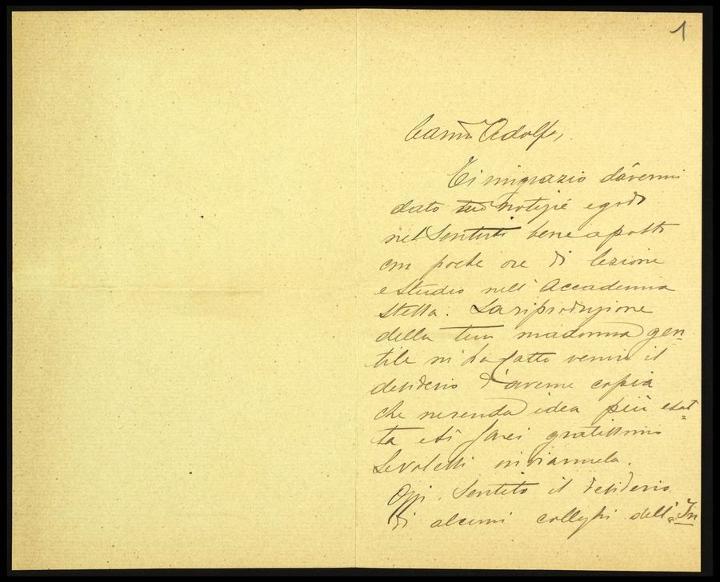 1
Carmo Adolfo,
Ti ringrazio d'avermi
dato tue notizie e godo
nel sentirti bene a posto
con poche ore di lezione
e studio nell'Accademia
stessa. La riproduzione
della tua madonna gen-
tile mi ha fatto venire il
desiderio d'averne copia
che ne renda idea più esat-
ta e ti sarei gratissimo
se volessi inviarmela.
Oggi. Sentito il desiderio
di alcuni colleghi dell'In